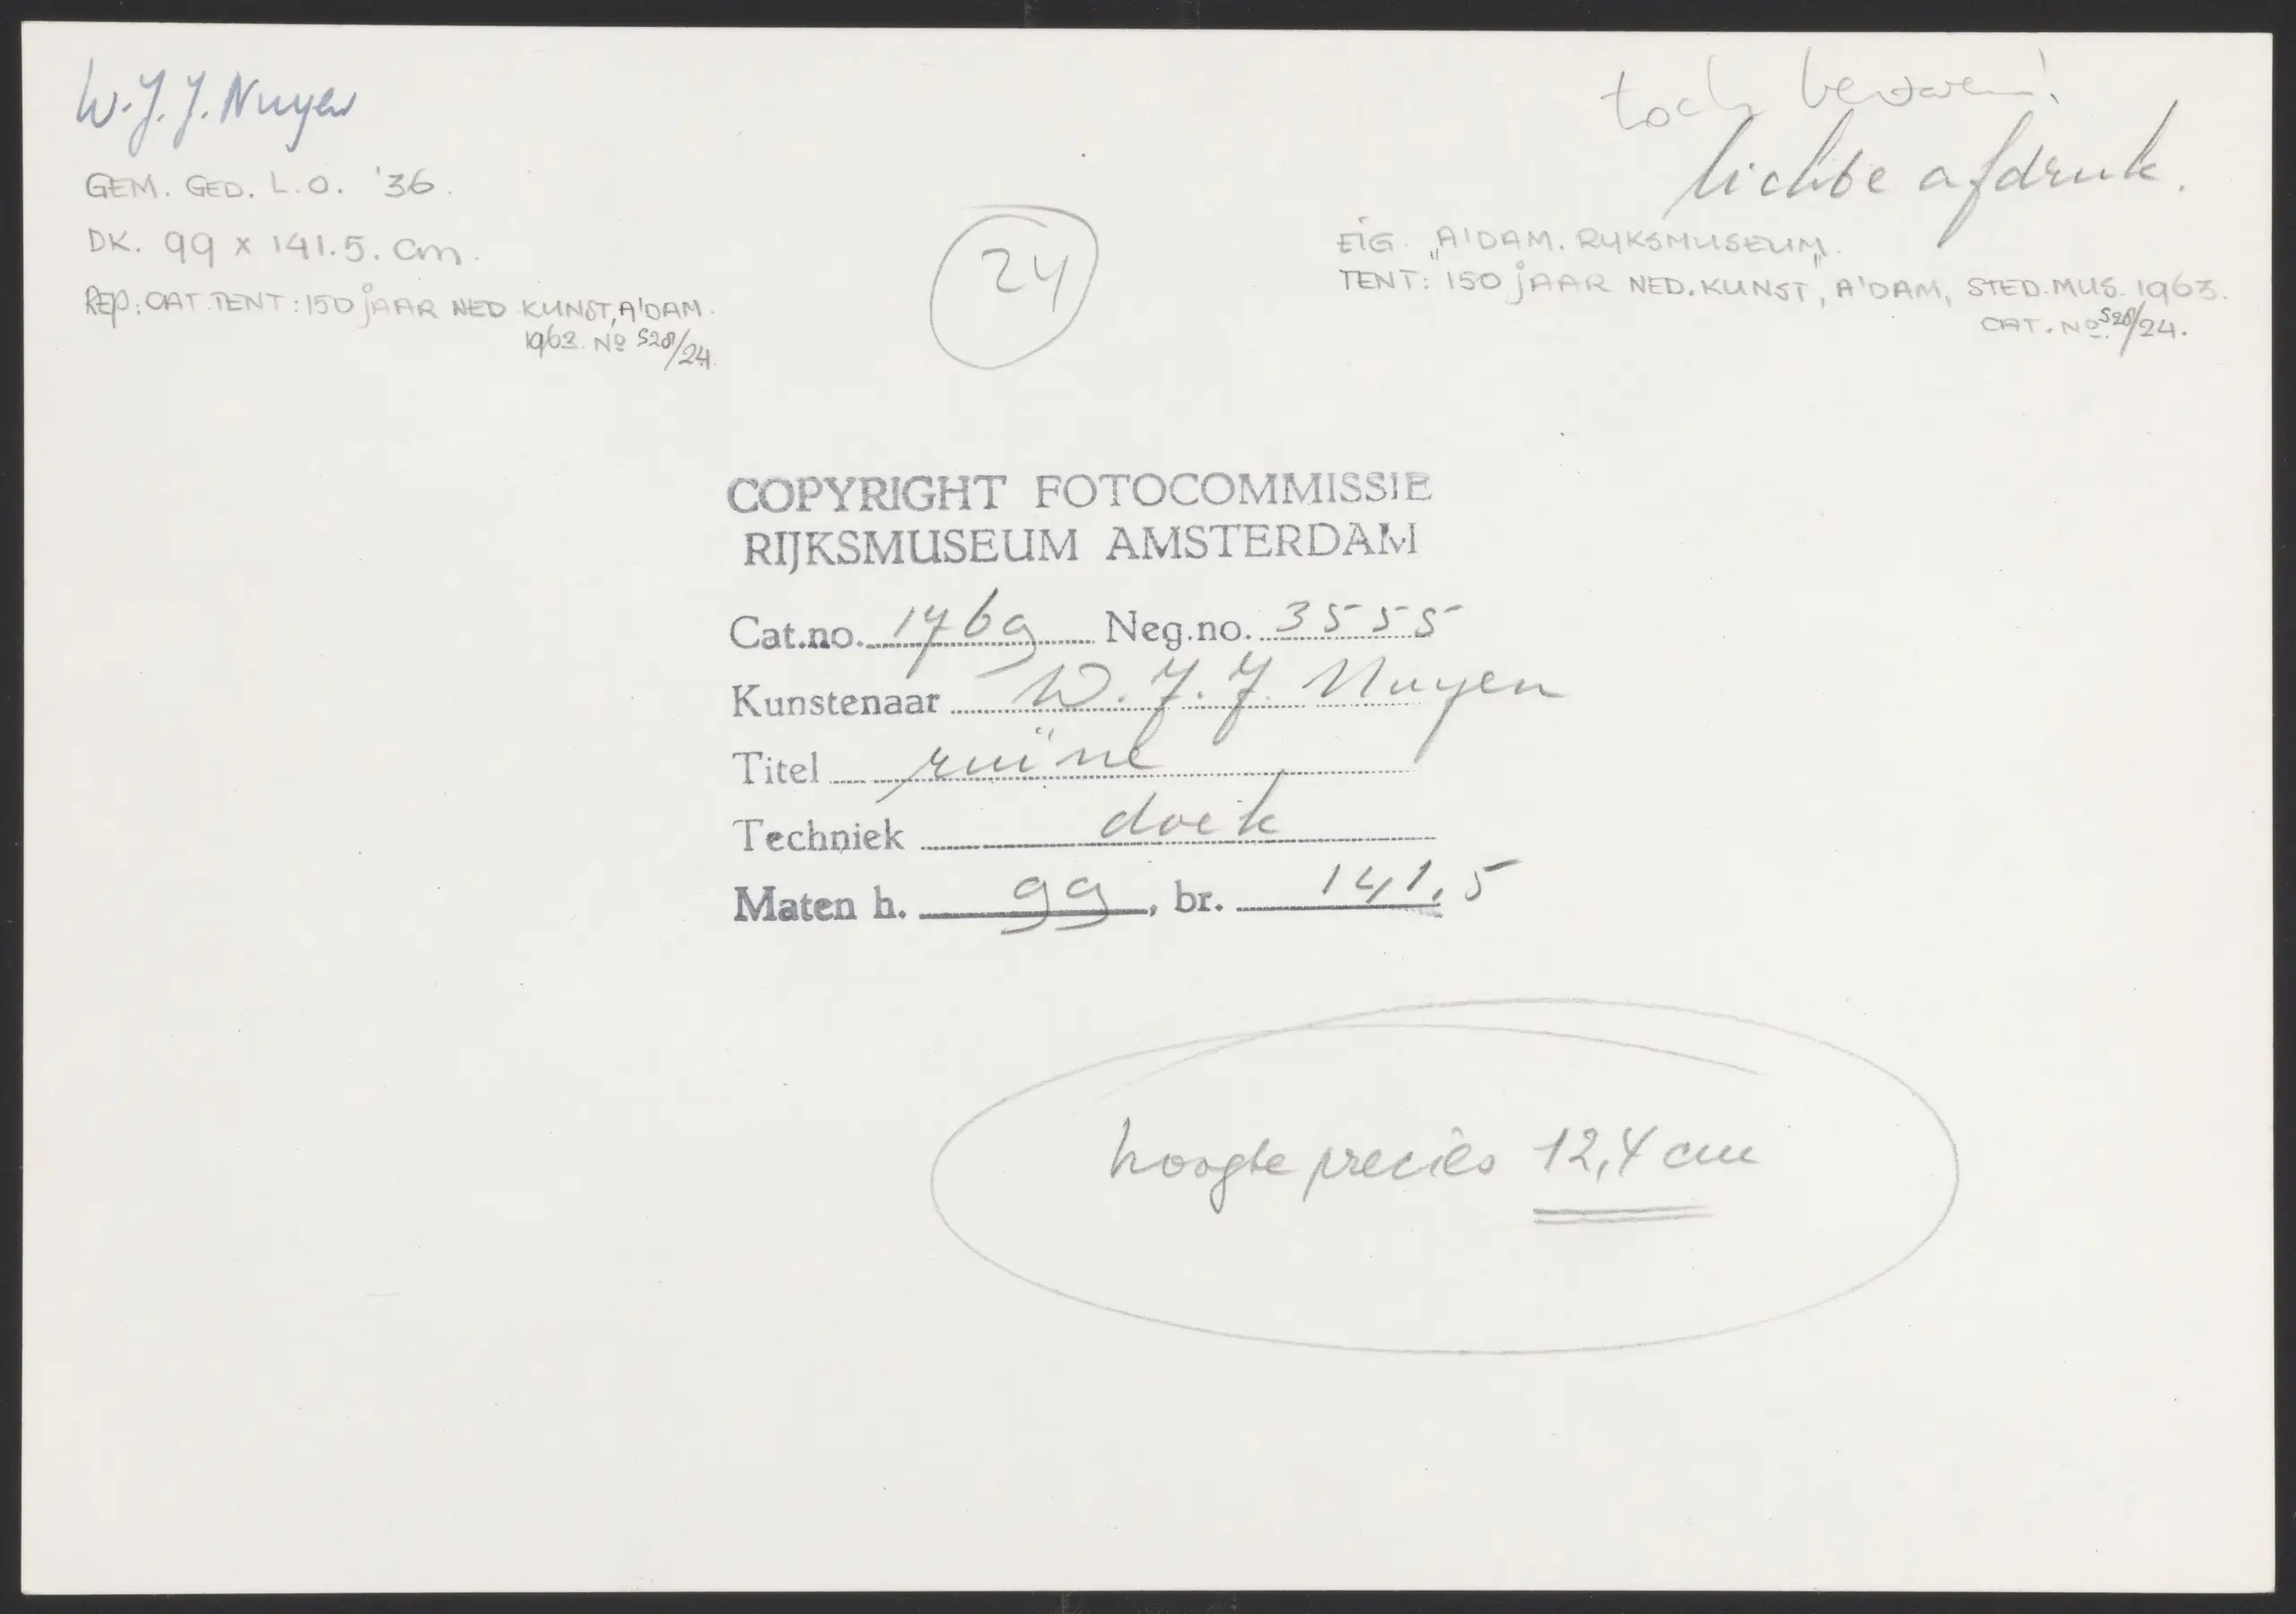 W.J.J. Nuyen
GEM. GED. L.O. '36.
DK. 99 x 141.5. cm.
REP: CAT. TENT: 150 jAAR NED KUNST, A'DAM.
1963. Nº 528/24.
24
toch bewaren!
lichte afdruk.
EIG. "A'DAM. RIJKSMUSEUM".
TENT: 150 jAAR NED. KUNST, A'DAM, STED. MUS. 1963.
CAT. Nº 528/24.
COPYRIGHT FOTOCOMMISSIE
RIJKSMUSEUM AMSTERDAM
Cat.no. 1769 Neg.no. 3555
Kunstenaar W. J. J. Nuyen
Titel ruïne
Techniek doek
Maten h. 99, br. 141,5
hoogte precies 12,4 cm